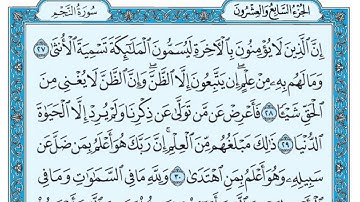 سُورَةُ النَّجْمِ الجُزْءُ السَّابِعُ وَالعِشْرُونَ
إِنَّ ٱلَّذِينَ لَا يُؤْمِنُونَ بِٱلْـَٔاخِرَةِ لَيُسَمُّونَ ٱلْمَلَٰٓئِكَةَ تَسْمِيَةَ ٱلْأُنثَىٰ ٢٧
وَمَا لَهُم بِهِۦ مِنْ عِلْمٍ ۖ إِن يَتَّبِعُونَ إِلَّا ٱلظَّنَّ ۖ وَإِنَّ ٱلظَّنَّ لَا يُغْنِى مِنَ
ٱلْحَقِّ شَيْـًٔا ٢٨ فَأَعْرِضْ عَن مَّن تَوَلَّىٰ عَن ذِكْرِنَا وَلَمْ يُرِدْ إِلَّا ٱلْحَيَوٰةَ
ٱلدُّنْيَا ٢٩ ذَٰلِكَ مَبْلَغُهُم مِّنَ ٱلْعِلْمِ ۚ إِنَّ رَبَّكَ هُوَ أَعْلَمُ بِمَن ضَلَّ عَن
سَبِيلِهِۦ وَهُوَ أَعْلَمُ بِمَنِ ٱهْتَدَىٰ ٣٠ وَلِلَّهِ مَا فِى ٱلسَّمَٰوَٰتِ وَمَا فِى